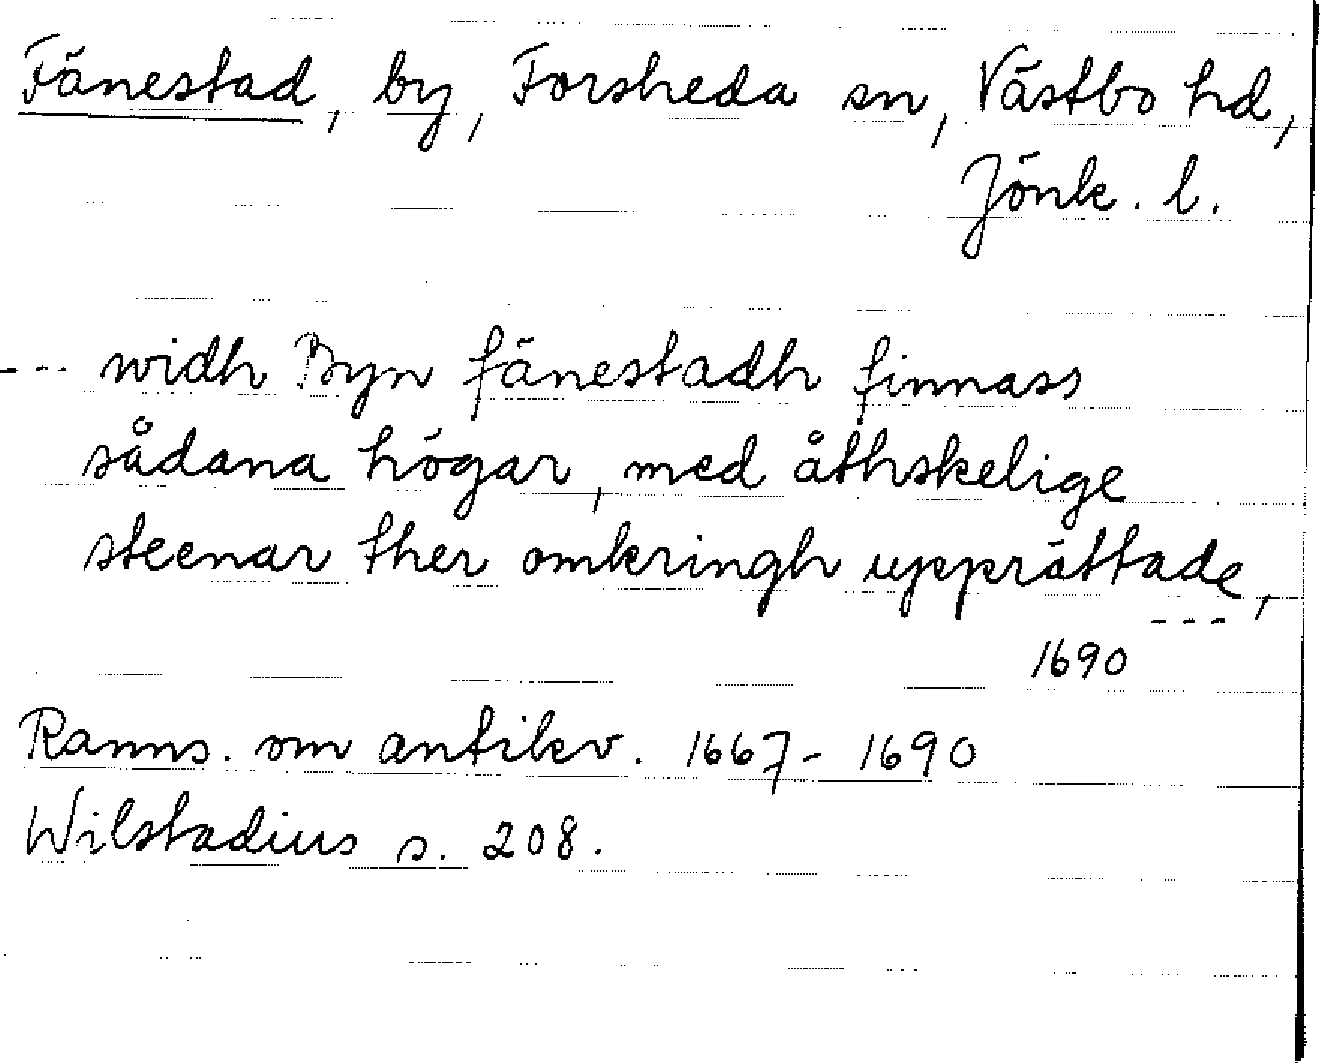 Fänestad, by, Forsheda sn, Västbo hd,
Jönk. l.
--- widh Byn fänestadh finnass
sådana högar, med åthskelige
steenar ther omkringh upprättade,
---
1690
Ranns. om antikv. 1667-1690
Wilstadius s. 208.